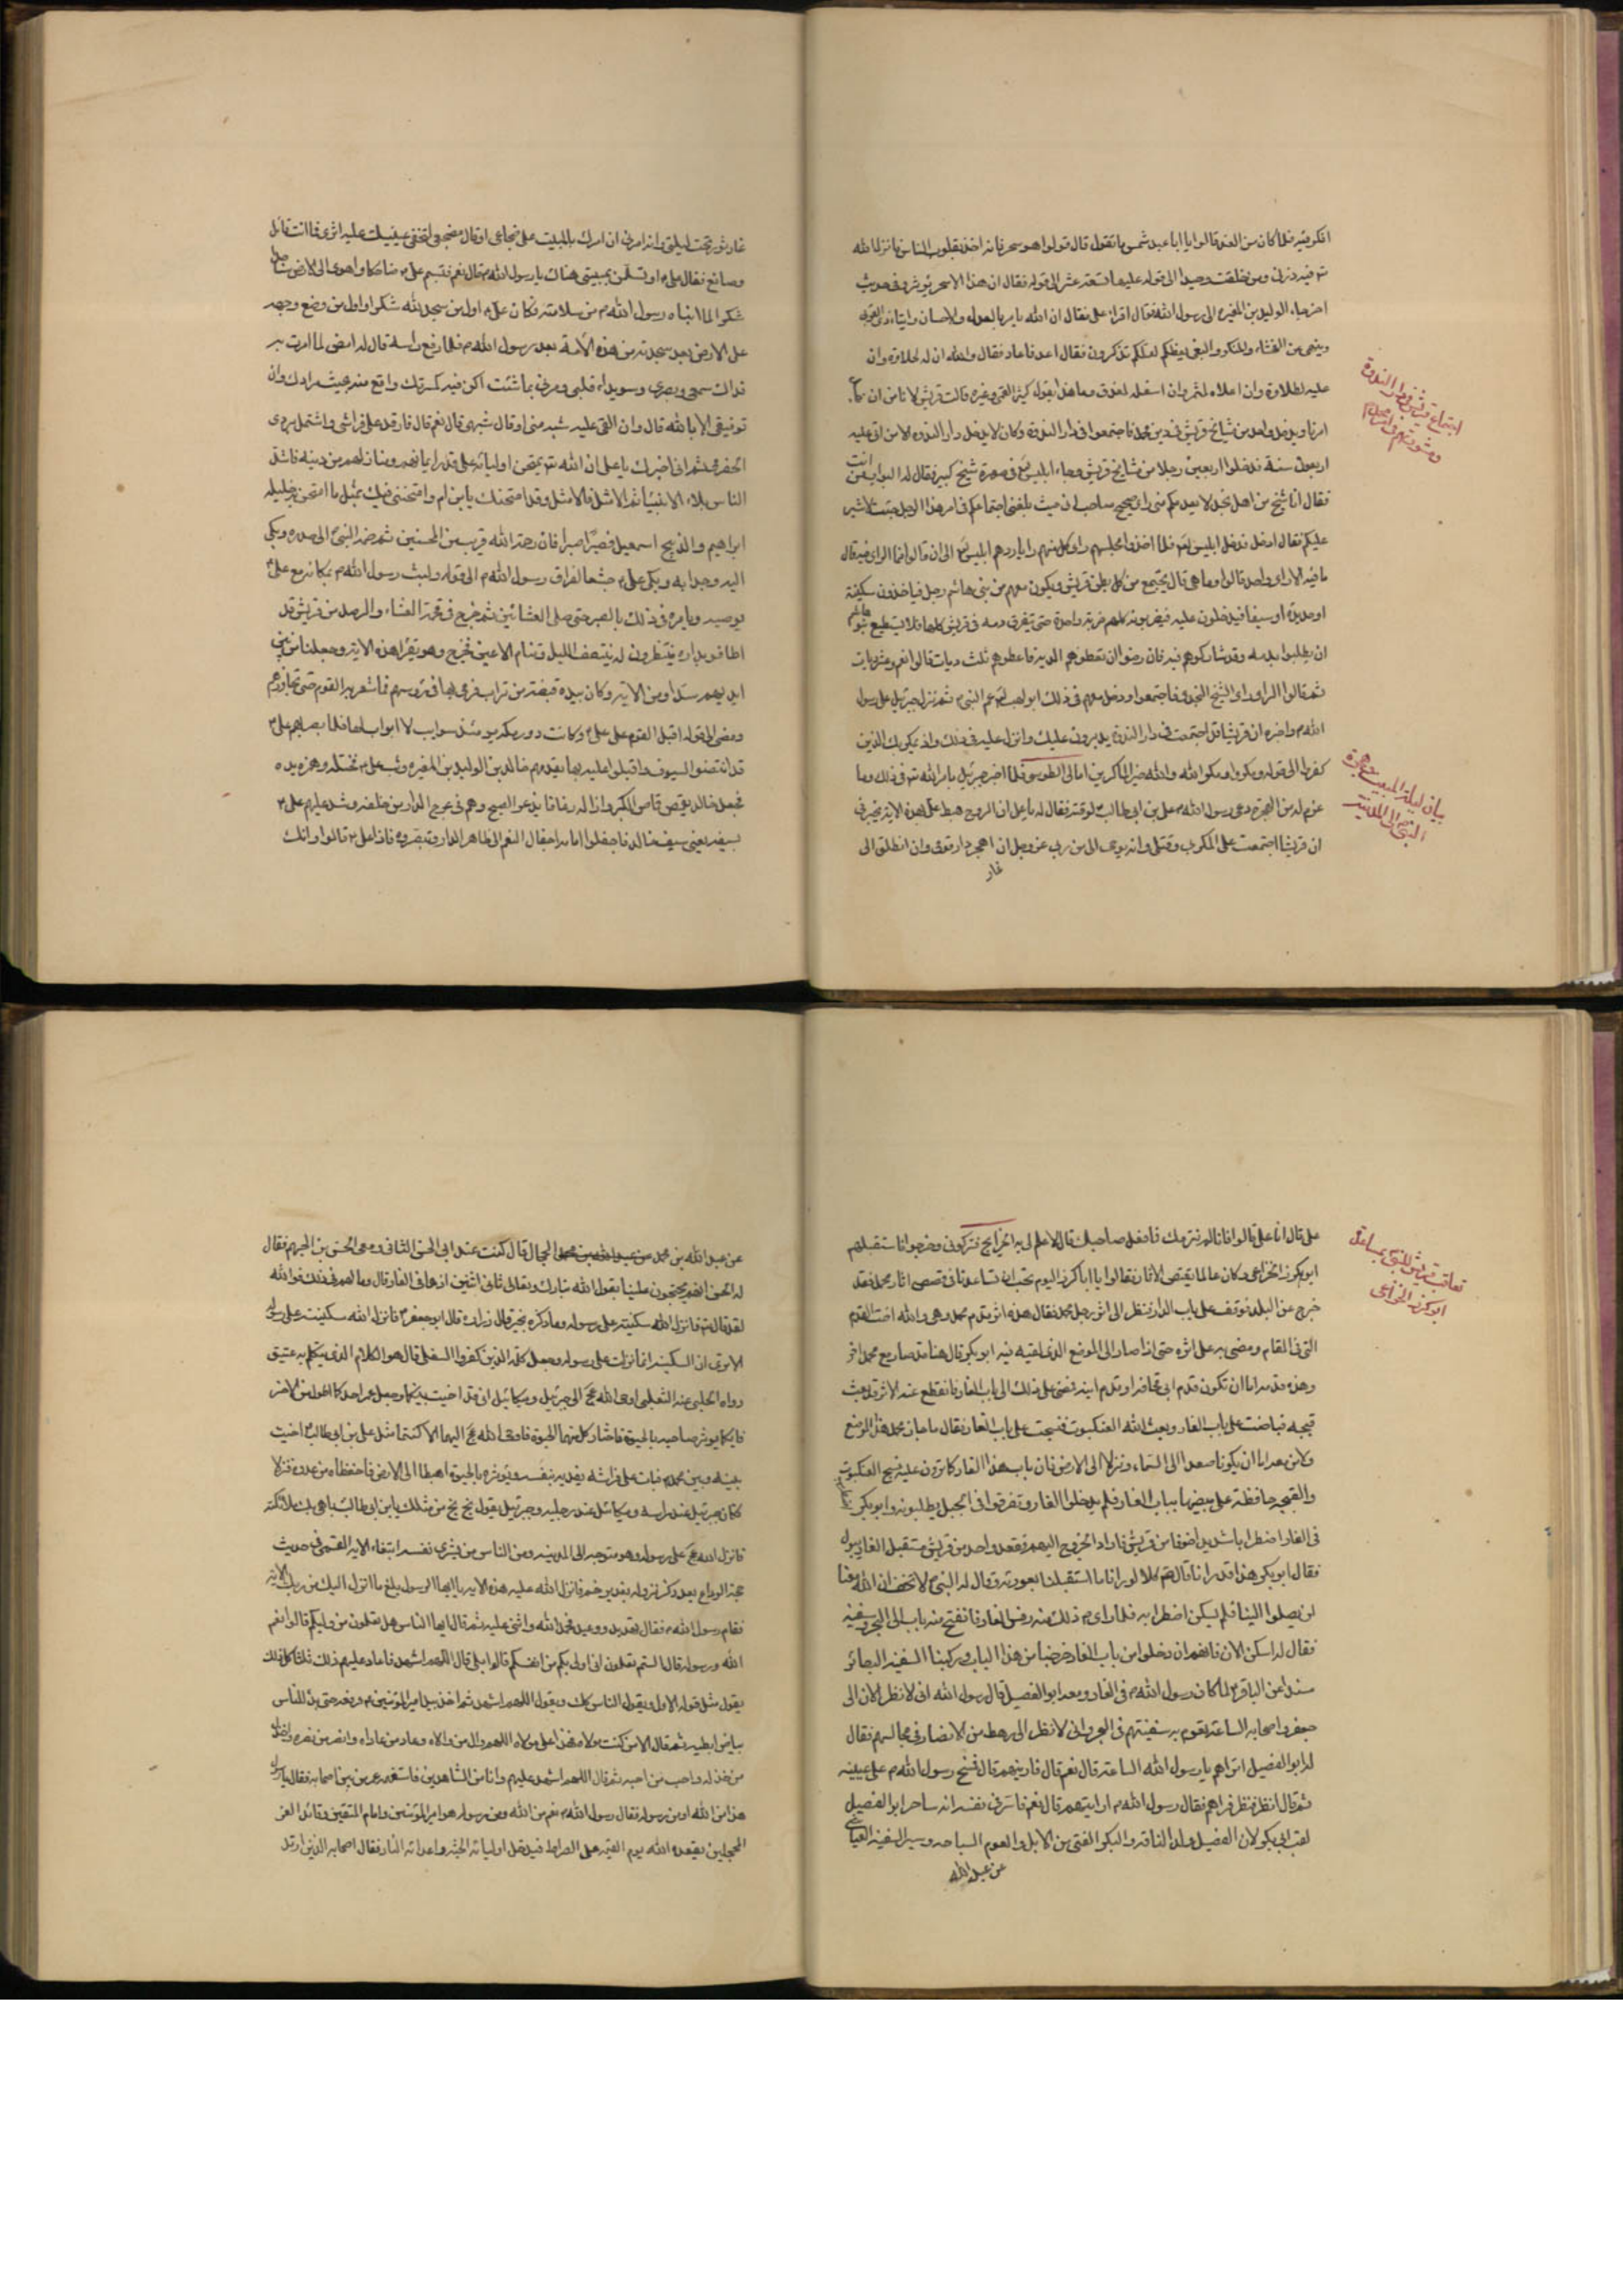 افكر فيه فلما كان من الغد قالوا يا ابا عبد شمس ما تقول قال قولوا هو سحر فانه اخذ بقلوب الناس فانزل الله
تع فيه ذرني ومن خلقت وحيدا الى قوله عليها تسعة عشر الى قوله فقال ان هذا الا سحر يؤثر وفي حديث
اخر جاء الوليد بن المغيرة الى رسول الله فقال اقرا علي فقال ان الله يامر بالعدل والاحسان وايتاء ذي القربى
وينهى عن الفحشاء والمنكر والبغي يعظكم لعلكم تذكرون فقال اعد فاعاد فقال والله ان له لحلاوة وان
عليه لطلاوة وان اعلاه لمثمر وان اسفله لمغدق وما هذا بقول قالت قريش لا نامن ان
امرنا ويدخل واحد من مشايخ قريش في دين محمد فاجتمعوا في دار الندوة وكان لا يدخل دار الندوة الا من اتى عليه
اربعون سنة فدخلوا اربعين رجلا من مشايخ قريش وجاء ابليس في صورة شيخ كبير فقال له البواب من انت
فقال انا شيخ من اهل نجد لا يعدمكم مني راي صحيح صاحب اني حيث بلغني اجتماعكم في امر هذا الرجل جئت لاشير
عليكم فقال ادخل فدخل ابليس فلما اخذوا مجلسهم وراى كل منهم رايا ردهم ابليس الى ان قالوا فما الراي فيه قال
ما فيه الا راي واحد قالوا وما هي قال يجتمع من كل بطن قريش ويكون معهم من بني هاشم رجل فياخذون سكينة
او حديدة او سيفا فيدخلون عليه فيضربونه كلهم ضربة واحدة حتى يتفرق دمه في قريش كلها فلا يستطيع بنو هاشم
ان يطلبوا بدمه وقد شاركوهم فيه فان رضوا ان تعطوهم الدية فاعطوهم ثلث ديات قالوا نعم وعشر ديات
ثم قالوا الراي راي الشيخ النجدي فاجتمعوا ودخل معهم في ذلك ابو لهب عم النبي ثم نزل جبرئيل على رسول
الله واخبره ان قريشا قد اجتمعت في دار الندوة يدبرون عليك وانزل عليه في ذلك واذ يمكر بك الذين
كفروا الى قوله ويمكرون ويمكر الله والله خير الماكرين امالي الطوسي فلما اخبر جبرئيل بامر الله تع في ذلك وما
عزم له من الهجرة دعى رسول الله علي بن ابي طالب لوقته فقال له يا علي ان الروح هبط علي بهذه الاية يخبرني
ان قريشا اجتمعت على المكر بي وقتلي وانه يوحى الي من ربي عز وجل ان اهجر دار قومي وان انطلق الى
غار
اجتماع قريش في دار الندوة
ومشورتهم في امر
بيان ليلة المبيت وهجرة
النبي الى المدينة
غار ثور تحت ليلتي وانه امرني ان امرك بالمبيت على ضجاعي او قال مضجعي لتخفي بمبيتك عليه اثري فما انت قائل
وصانع فقال علي او تسلمن بمبيتي هناك يا رسول الله قال نعم فتبسم علي ضاحكا واهوى الى الارض ساجدا
شكرا لما انباه رسول الله من سلامته فكان علي اول من سجد لله شكرا واول من وضع وجهه
على الارض بعد سجدته من هذه الامة بعد رسول الله فلما رفع راسه قال له امض لما امرت به
فداك سمعي وبصري وسويداء قلبي ومرني بما شئت اكن فيه كمسرتك واقع منه بحيث مرادك وان
توفيقي الا بالله قال وان القي عليه شبه مني او قال شبهي قال نعم قال فارقد على فراشي واشتمل بردي
الحضرمي ثم اني اخبرك يا علي ان الله تع يمتحن اوليائه على قدر ايمانهم ومنازلهم من دينه فاشد
الناس بلاء الانبياء ثم الامثل فالامثل وقد امتحنك يا بن ام وامتحنني فيك بمثل ما امتحن به خليله
ابراهيم والذبيح اسمعيل فصبرا صبرا فان رحمة الله قريب من المحسنين ثم ضمه النبي الى صدره وبكى
اليه وجدا به وبكى علي جشعا لفراق رسول الله الى قوله ولبث رسول الله بمكانه مع علي
يوصيه ويامره في ذلك بالصبر حتى صلى العشائين ثم خرج في فحمة العشاء والرصد من قريش قد
اطافوا بداره ينتظرون ان ينتصف الليل وتنام الاعين فخرج وهو يقرا هذه الاية وجعلنا من بين
ايديهم سدا ومن الاية وكان بيده قبضة من تراب فرمى بها في رؤسهم فما شعر به القوم حتى تجاوزهم
ومضى الى قوله اقبل القوم على علي وكانت دور مكة يومئذ سوايب لا ابواب لها فلما بصر بهم علي
قد انتضوا السيوف واقبلوا عليه بها يقدمهم خالد بن الوليد بن المغيرة وثب علي فختله وهمز يده
فجعل خالد يقمص قماص البكر واذا له رغاء فابذعر الصبح وهم في عرج الدار من خلفه وشد عليهم علي
بسيفه يعني سيف خالد فاجفلوا امامه اجفال النعم الى ظاهر الدار وتبصروه فاذا علي قالوا وانك
علي قال انا علي قالوا فانا لم نردك فما فعل صاحبك قال لا علم لي به الخرايج فتركوني وخرجوا فاستقبلهم
ابو كرز الخزاعي وكان عالما بقصص الاثار فقالوا يا ابا كرز اليوم نحب ان تساعدنا في قصص اثار محمد فقد
خرج عن البلد فوقف على باب الدار فنظر الى اثر رجل محمد فقال هذه اثر قدم محمد وهي والله اخت القدم
التي في المقام ومضى به على اثره حتى اذا صار الى الموضع الذي لقيه فيه ابو بكر قال هنا قد صار مع محمد اخر
وهذه قدمه اما ان تكون قدم ابي قحافة او قدم ابنه فمضى على ذلك الى باب الغار فانقطع عنه الاثر وقد بعث
قبجة فباضت على باب الغار وبعث الله العنكبوت فنسجت على باب الغار فقال ما جاز محمد هذا الموضع
ولا من معه اما ان يكونا صعدا الى السماء ونزلا الى الارض فان باب هذا الغار كما ترون عليه نسج العنكبوت
والقبجة حافظة على بيضها بباب الغار فلم يدخلوا الغار وتفرقوا في الجبل يطلبونه وابو بكر
في الغار اضطرابا شديدا خوفا من قريش فاراد الخروج اليهم وقعد واحد من قريش مستقبل الغار يبول
فقال ابو بكر هذا قد رانا قال كلا لو رانا ما استقبلنا بعورته وقال له النبي لا تخف ان الله معنا
لن يصلوا الينا فلم يسكن اضطرابه فلما راى ذلك منه رفس الغار فانفتح منه باب الى البحر وسفينة
فقال له اسكن الان فانهم ان دخلوا من باب الغار خرجنا من هذا الباب وركبنا السفينة البصائر
مسندا عن الباقر لما كان رسول الله في الغار ومعه ابو الفصيل قال رسول الله اني لانظر الان الى
جعفر واصحابه الساعة تقوم به سفينتهم في البحر واني لانظر الى رهط من الانصار في مجالسهم فقال
له ابو الفصيل اتراهم يا رسول الله الساعة قال نعم قال فارنيهم قال فمسح رسول الله على عينيه
ثم قال انظر فنظر فراهم فقال رسول الله ارايتهم قال نعم فاسر في نفسه انه ساحر ابو الفصيل
لقب ابي بكر لان الفصيل ولد الناقة والبكر الفتى من الابل والعوم السباحة وسير السفينة العياشي
عن عبد الله
تعاقب قريش للنبي بمساعدة
ابو كرز الخزاعي
عن عبد الله بن محمد الحجال قال كنت عند ابي الحسن الثاني ومعي الحسن بن الجهم فقال
له الحسن انهم يحتجون علينا بقول الله تبارك وتعالى ثاني اثنين اذ هما في الغار قال وما لهم في ذلك فوالله
لقد قال تع فانزل الله سكينته على رسوله وما ذكره بخير قال زرارة قال ابو جعفر فانزل الله سكينته على رسوله
الا ترى ان السكينة انما نزلت على رسوله وجعل كلمة الذين كفروا السفلى قال هو الكلام الذي يتكلم به عتيق
رواه الحلبي عنه الثعلبي اوحى الله الى جبرئيل وميكائيل اني قد اخيت بينكما وجعل عمر احدكما اطول من الاخر
فايكما يوثر صاحبه بالحيوة فاختار كل منهما الحيوة فاوحى الله اليهما الا كنتما مثل علي بن ابي طالب اخيت
بينه وبين محمد فبات على فراشه يفديه بنفسه ويوثره بالحيوة اهبطا الى الارض فاحفظاه من عدوه فنزلا
فكان جبرئيل عند راسه وميكائيل عند رجليه وجبرئيل يقول بخ بخ من مثلك يا بن ابي طالب يباهي بك ملائكته
فانزل الله على رسوله وهو متوجه الى المدينة ومن الناس من يشري نفسه ابتغاء الاية القمي في حديث
حجة الوداع بعد ذكر نزوله بغدير خم فانزل الله عليه هذه الاية يا ايها الرسول بلغ ما انزل اليك من ربك الاية
فقام رسول الله فقال تهديد ووعيد فحمد الله واثنى عليه ثم قال ايها الناس هل تعلمون من وليكم قالوا نعم
الله ورسوله قال الستم تعلمون اني اولى بكم من انفسكم قالوا بلى قال اللهم اشهد فاعاد عليهم ذلك ثلثا كل ذلك
يقول مثل قوله الاول ويقول الناس كذلك ويقول اللهم اشهد ثم اخذ بيد امير المؤمنين ورفعه حتى بدا للناس
بياض ابطيه ثم قال الا من كنت مولاه فهذا علي مولاه اللهم وال من والاه وعاد من عاداه وانصر من نصره واخذل
من خذله واحب من احبه ثم قال اللهم اشهد عليهم وانا من الشاهدين فاستفهمه عمر من بين اصحابه فقال يا رسول
هذا من الله او من رسوله فقال رسول الله نعم من الله ومن رسوله هو امير المؤمنين وامام المتقين وقائد الغر
المحجلين يقعده الله يوم القيمة على الصراط فيدخل اوليائه الجنة واعدائه النار فقال اصحابه الذين ارتد